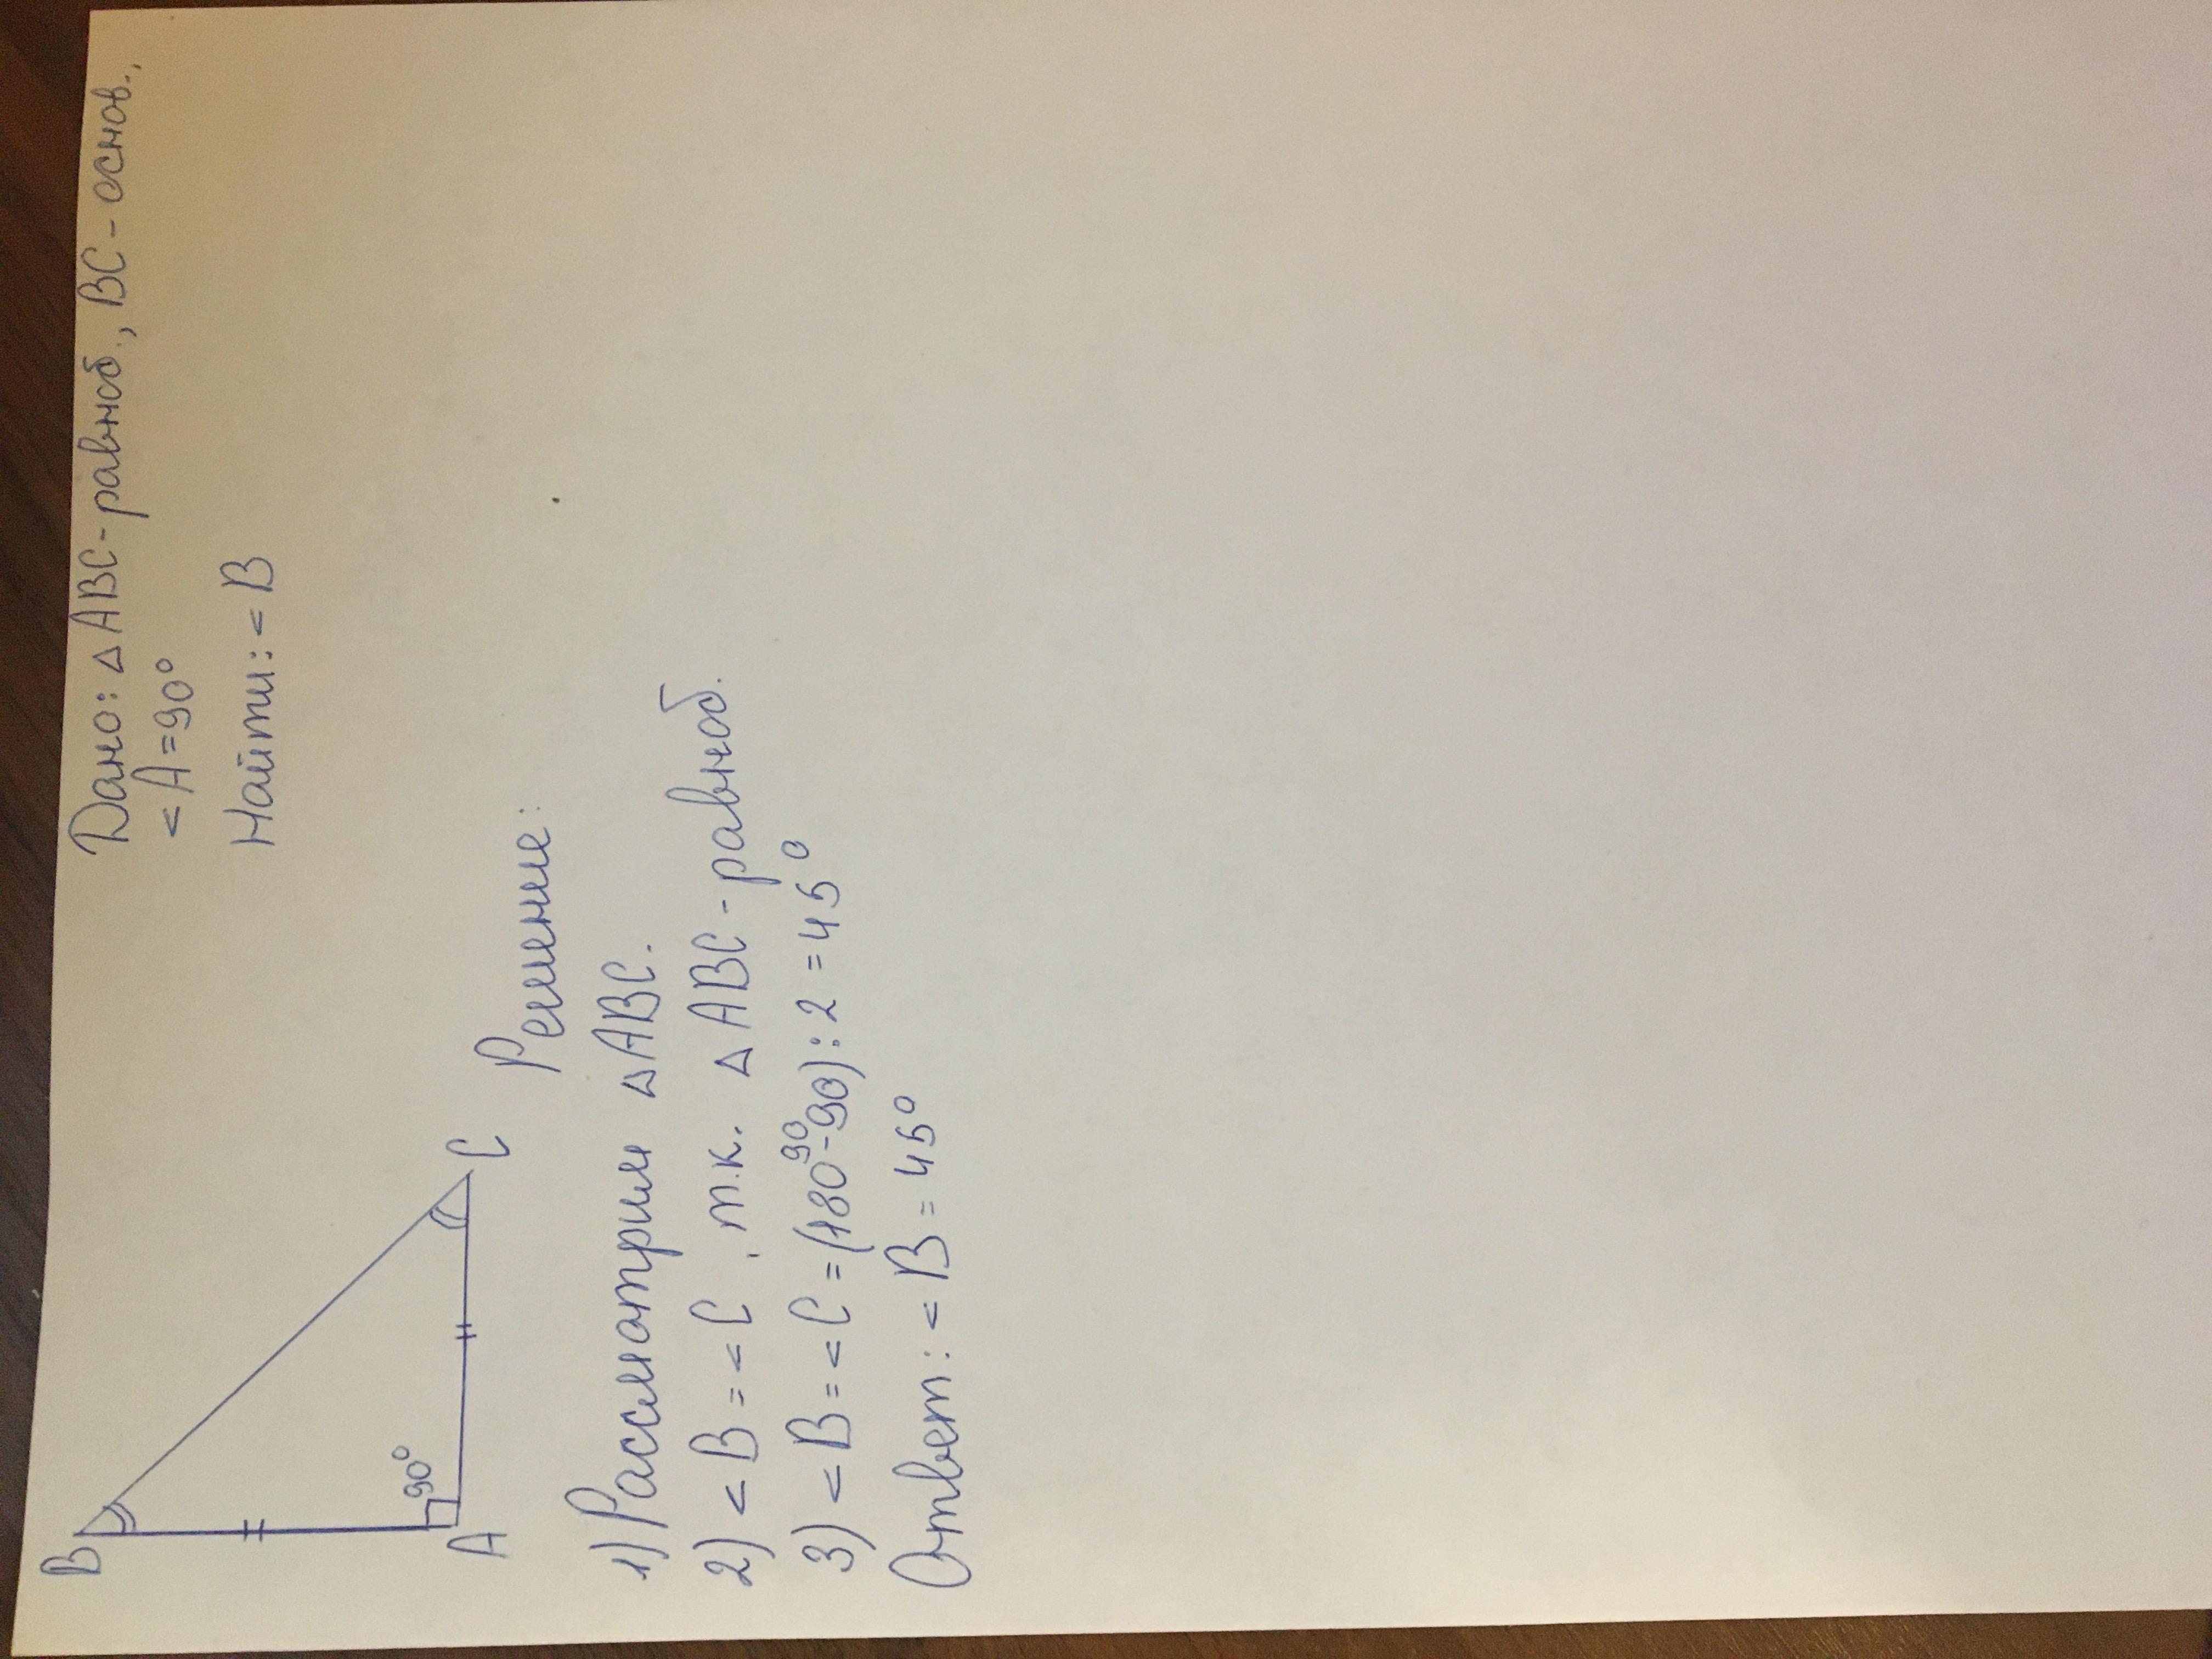 B
A
C
90°
Дано: △ABC-равноб., BC-основ.,
<A=90°
Найти: <B
Решение:
1) Рассмотрим △ABC.
2) <B = <C, т.к. △ABC-равноб.
3) <B = <C = (180-90):2 = 45°
90
Ответ: <B = 45°